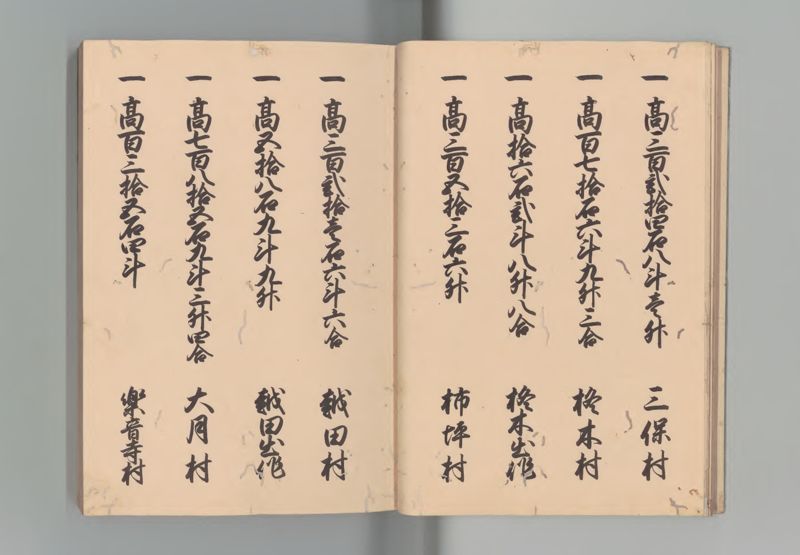 一 高三百弐拾四石八斗壱升 三保村
一 高百七拾石六斗九升三合 柊木村
一 高拾六石弐斗八升八合 柊木出作
一 高三百五拾三石六升 柿坪村
一 高三百弐拾壱石六斗六合 越田村
一 高五拾八石九斗九升 越田出作
一 高七百八拾五石九斗三升四合 大月村
一 高百三拾五石四斗 楽音寺村